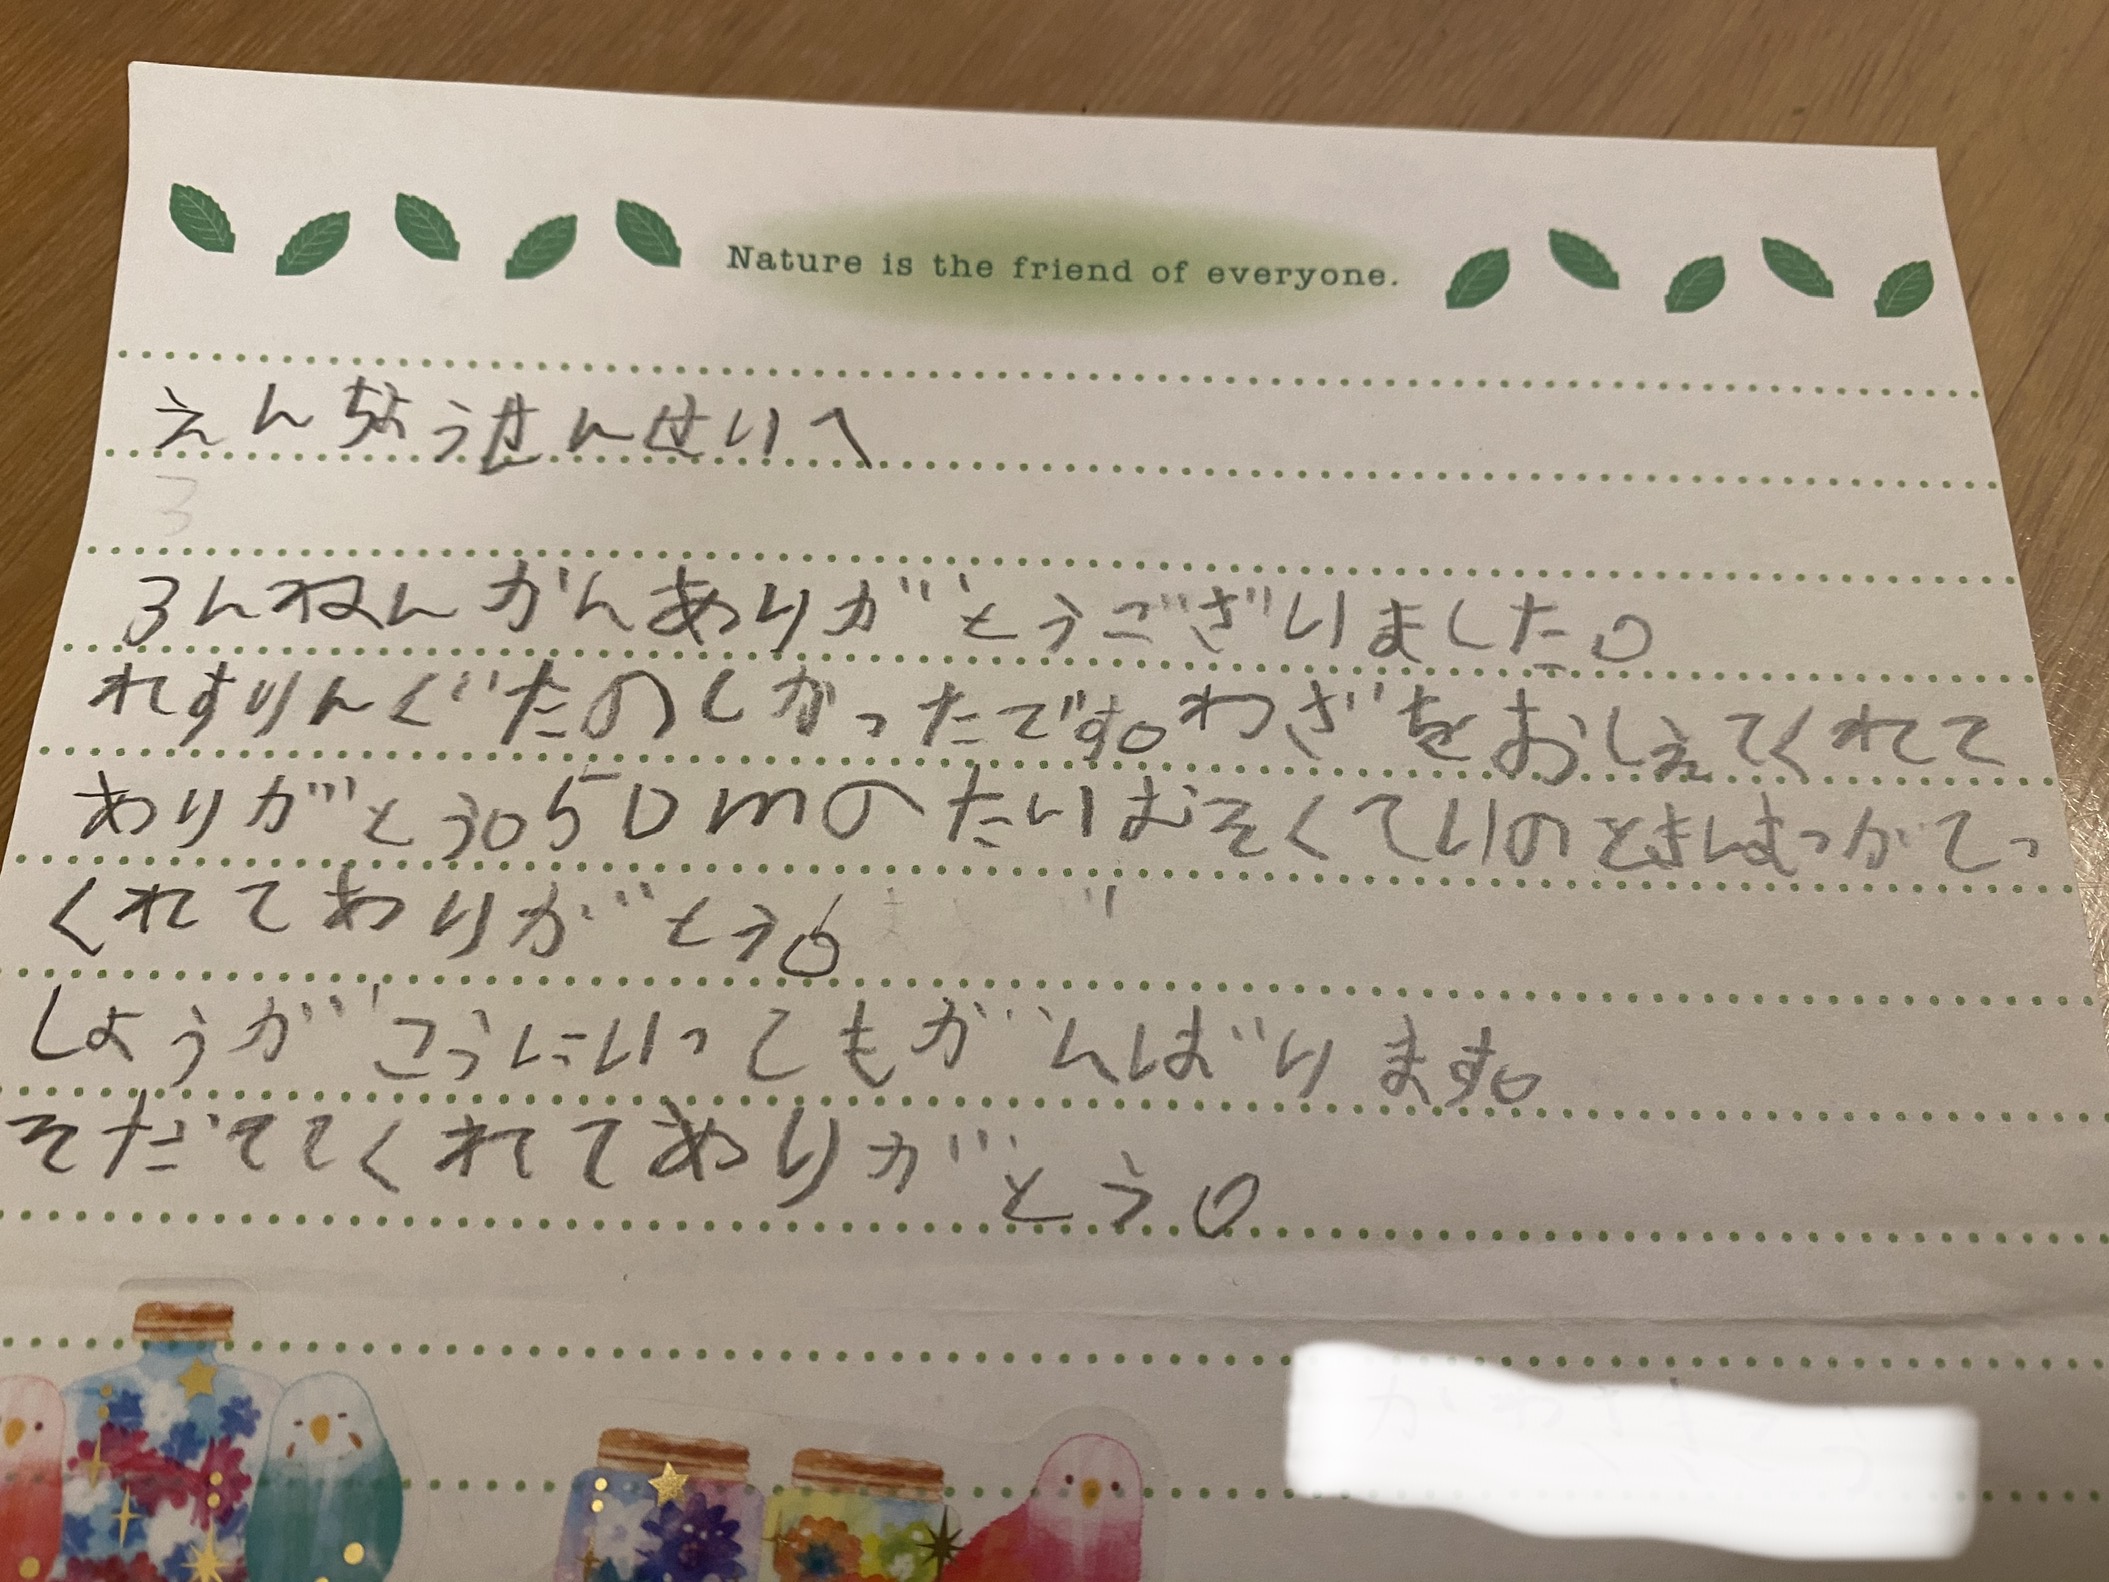 Nature is the friend of everyone.
えんちょうせんせいへ
3んねんかんありがとうございました。
れすりんぐたのしかったです。わざをおしえてくれて
ありがとう。50mのたいむそくていのときはっ
くれてありがとう。
しょうがこうにいってもがんばります。
そだててくれてありがとう。